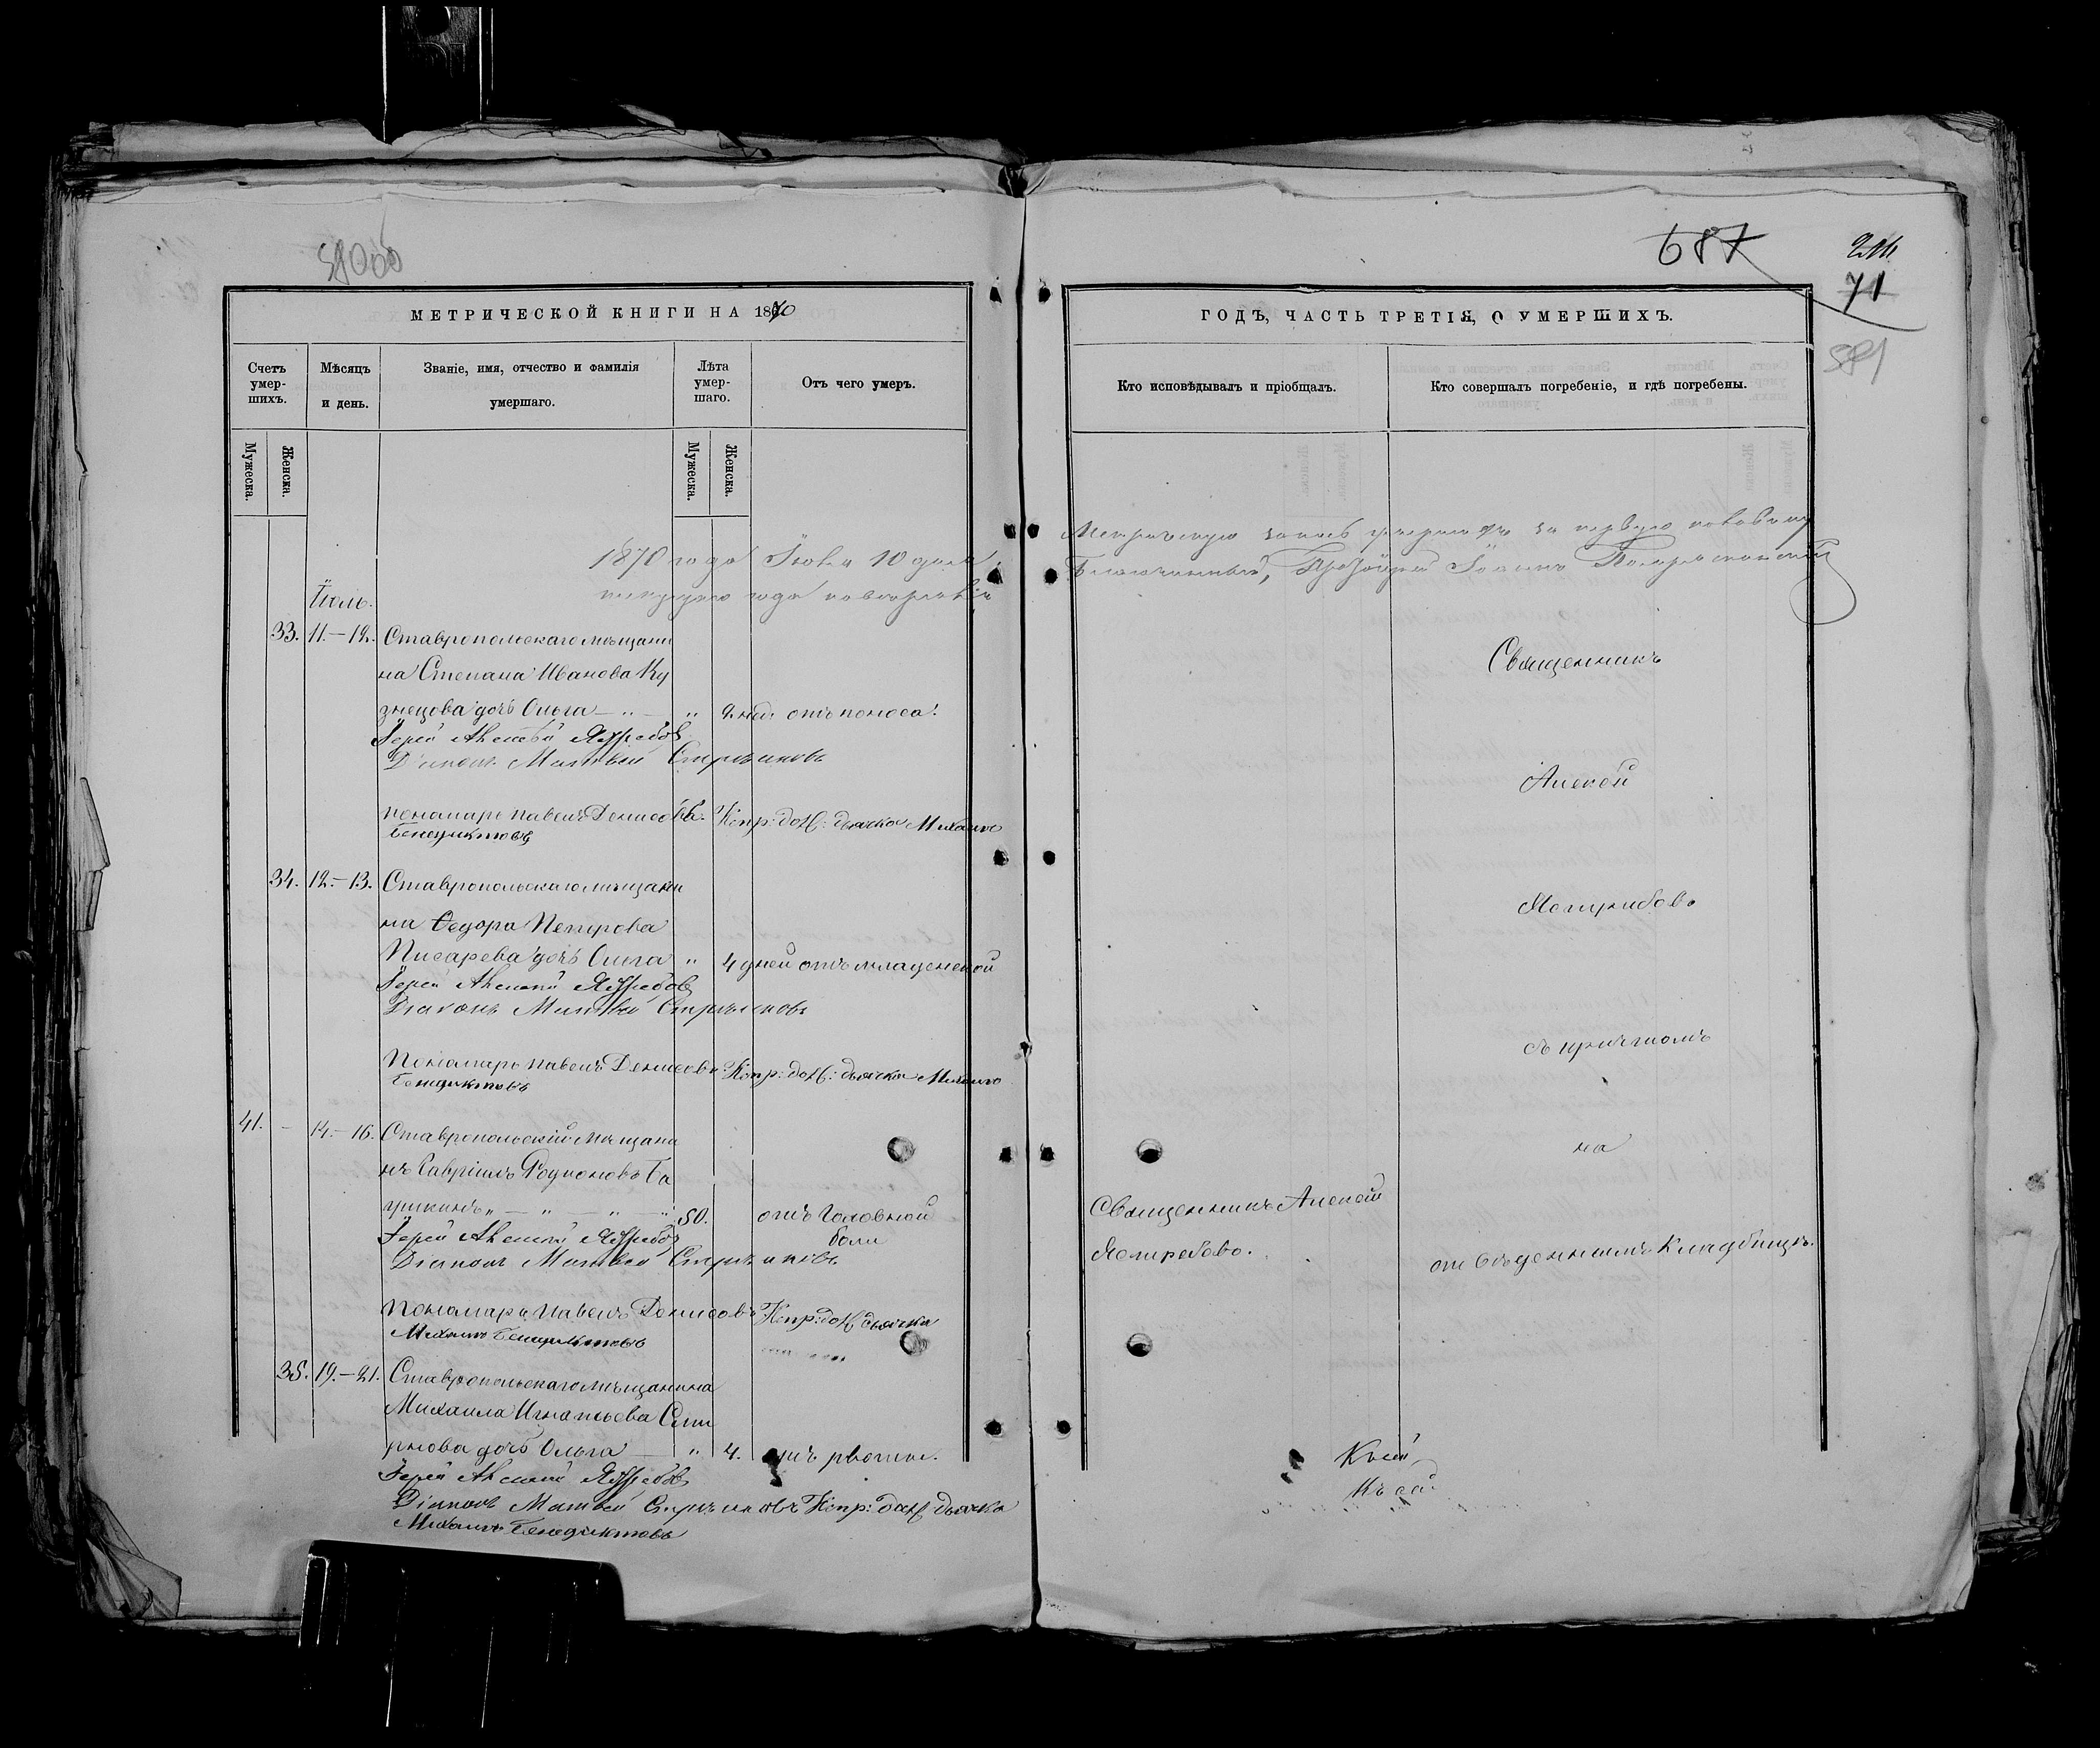 580об
МЕТРИЧЕСКОЙ КНИГИ НА 1870
Счетъ умер-шихъ.
Мѣсяцъ и день.
Званіе, имя, отчество и фамилія умершаго.
Лѣта умер-шаго.
Отъ чего умеръ.
Мужеска.
Женска.
Мужеска.
Женска.
1870 года Іюля 10 дня
Іюль.
33. 11.–12. Ставропольскаго мѣщани
на Степана Иванова Ку
знецова дочь Ольга – „ – „ 2 нед. отъ поноса.
Іерей Алексѣй Ястребовъ
Діаконъ Матвѣй
пономарь павелъ Денисовъ. Испр: дол: дьячка Михаилъ
Бенедиктовъ
34. 12.–13. Ставропольскаго мѣщани
на Ѳедора Петрова
Писарева дочь Ольга „ 4 дней отъ младенской
Іерей Алексѣй Ястребовъ
Діаконъ Матвѣй
Пономарь павелъ Денисовъ Испр: дол: дьячка Михаилъ
Бенедиктовъ
41. – 14.–16. Ставропольскій мѣщани
нъ Гавріилъ Родионовъ Ба
„ – „ – „ – „ 50. отъ головной
боли
Іерей Алексѣй Ястребовъ
Діаконъ Матвѣй
Пономарь Павелъ Денисовъ Испр: дол: дьячка
Михаилъ Бенедиктовъ
35. 19.–21. Ставропольскаго мѣщанина
Михаила Игнатьева Сми
рнова дочь Ольга – „ 4. отъ рвоты.
Іерей Алексѣй Ястребовъ
Діаконъ Матвѣй Испр: дол: дьячка
Михаилъ Бенедиктовъ
687
71
581
ГОДЪ, ЧАСТЬ ТРЕТІЯ, О УМЕРШИХЪ.
Кто исповѣдывалъ и пріобщалъ.
Кто совершалъ погребеніе, и гдѣ погребены.
за первую половину
Благочинный, Протоіерей Іоаннъ
Священникъ
Алексѣй
Ястребовъ
съ причтомъ
на
Священникъ Алексѣй
Ястребовъ.
отведенномъ кладбищѣ.